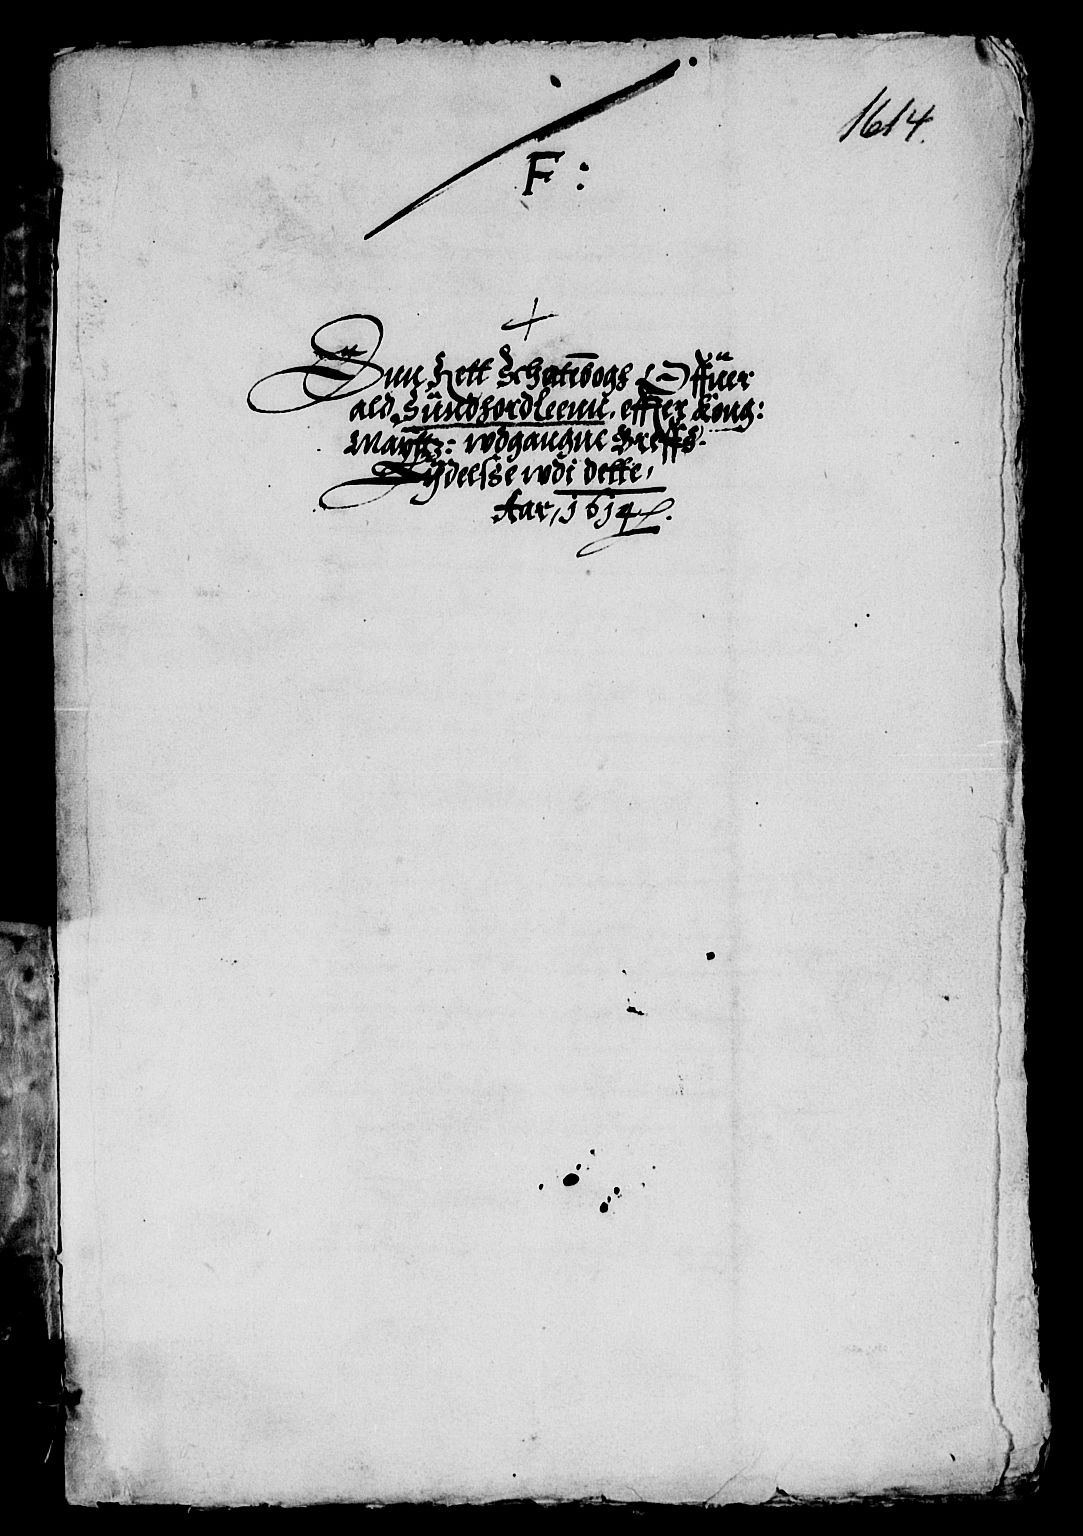 1614.
F:
Enn Rett Schattebogs Offuer
ald Sündfordleenn, effter Kong:
Maÿttz: wdganngne Breffs
Lÿdelsse wdi dette,
Aar, 1614.